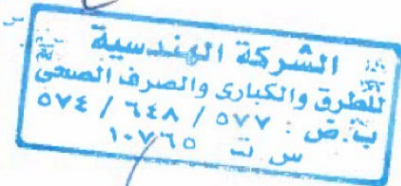 الشركة الهندسية
للطرق والكبارى والصرف الصحى
ب.ض : ٥٧٧ / ٦٤٨ / ٥٧٤
س ت ١٠٧٦٥